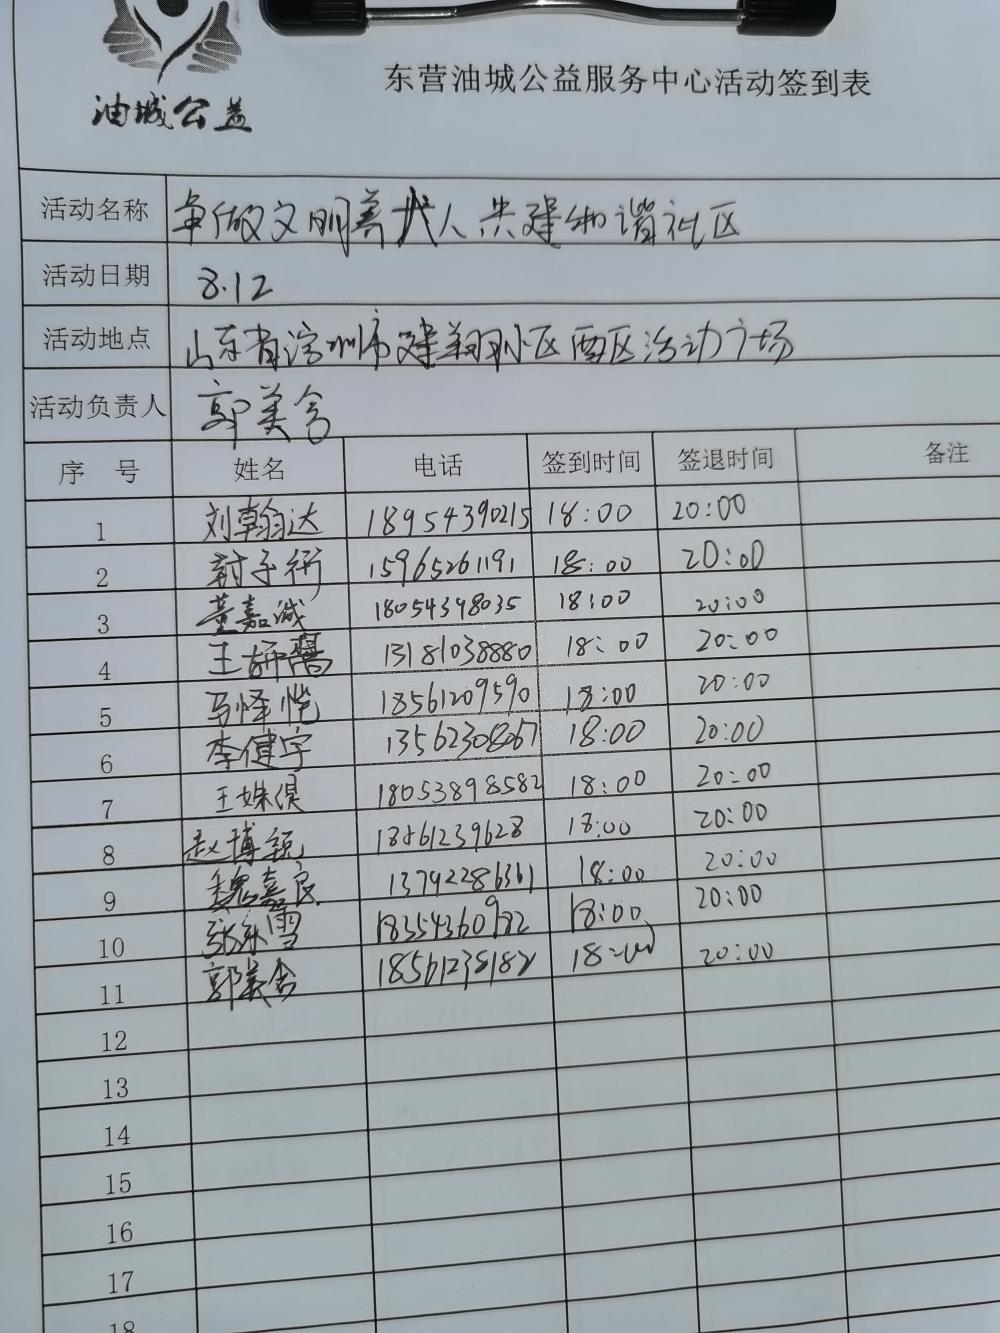 油城公益
东营油城公益服务中心活动签到表
活动名称 争做文明养犬人 共建和谐社区
活动日期 8.12
活动地点 山东省滨州市建翔小区西区活动广场
活动负责人 郭美含
序 号 姓名 电话 签到时间 签退时间 备注
1 刘翰达 18954390215 18:00 20:00
2 封子衍 15965261191 18:00 20:00
3 董嘉诚 18054398035 18:00 20:00
4 王妍 13181038880 18:00 20:00
5 马怿恺 18561209590 18:00 20:00
6 李健宇 13562308067 18:00 20:00
7 王姝俣 18053898582 18:00 20:00
8 赵博 18661239628 18:00 20:00
9 魏嘉良 13792286361 18:00 20:00
10 张东雪 18354360982 18:00 20:00
11 郭美含 18561238182 18:00 20:00
12
13
14
15
16
17
18